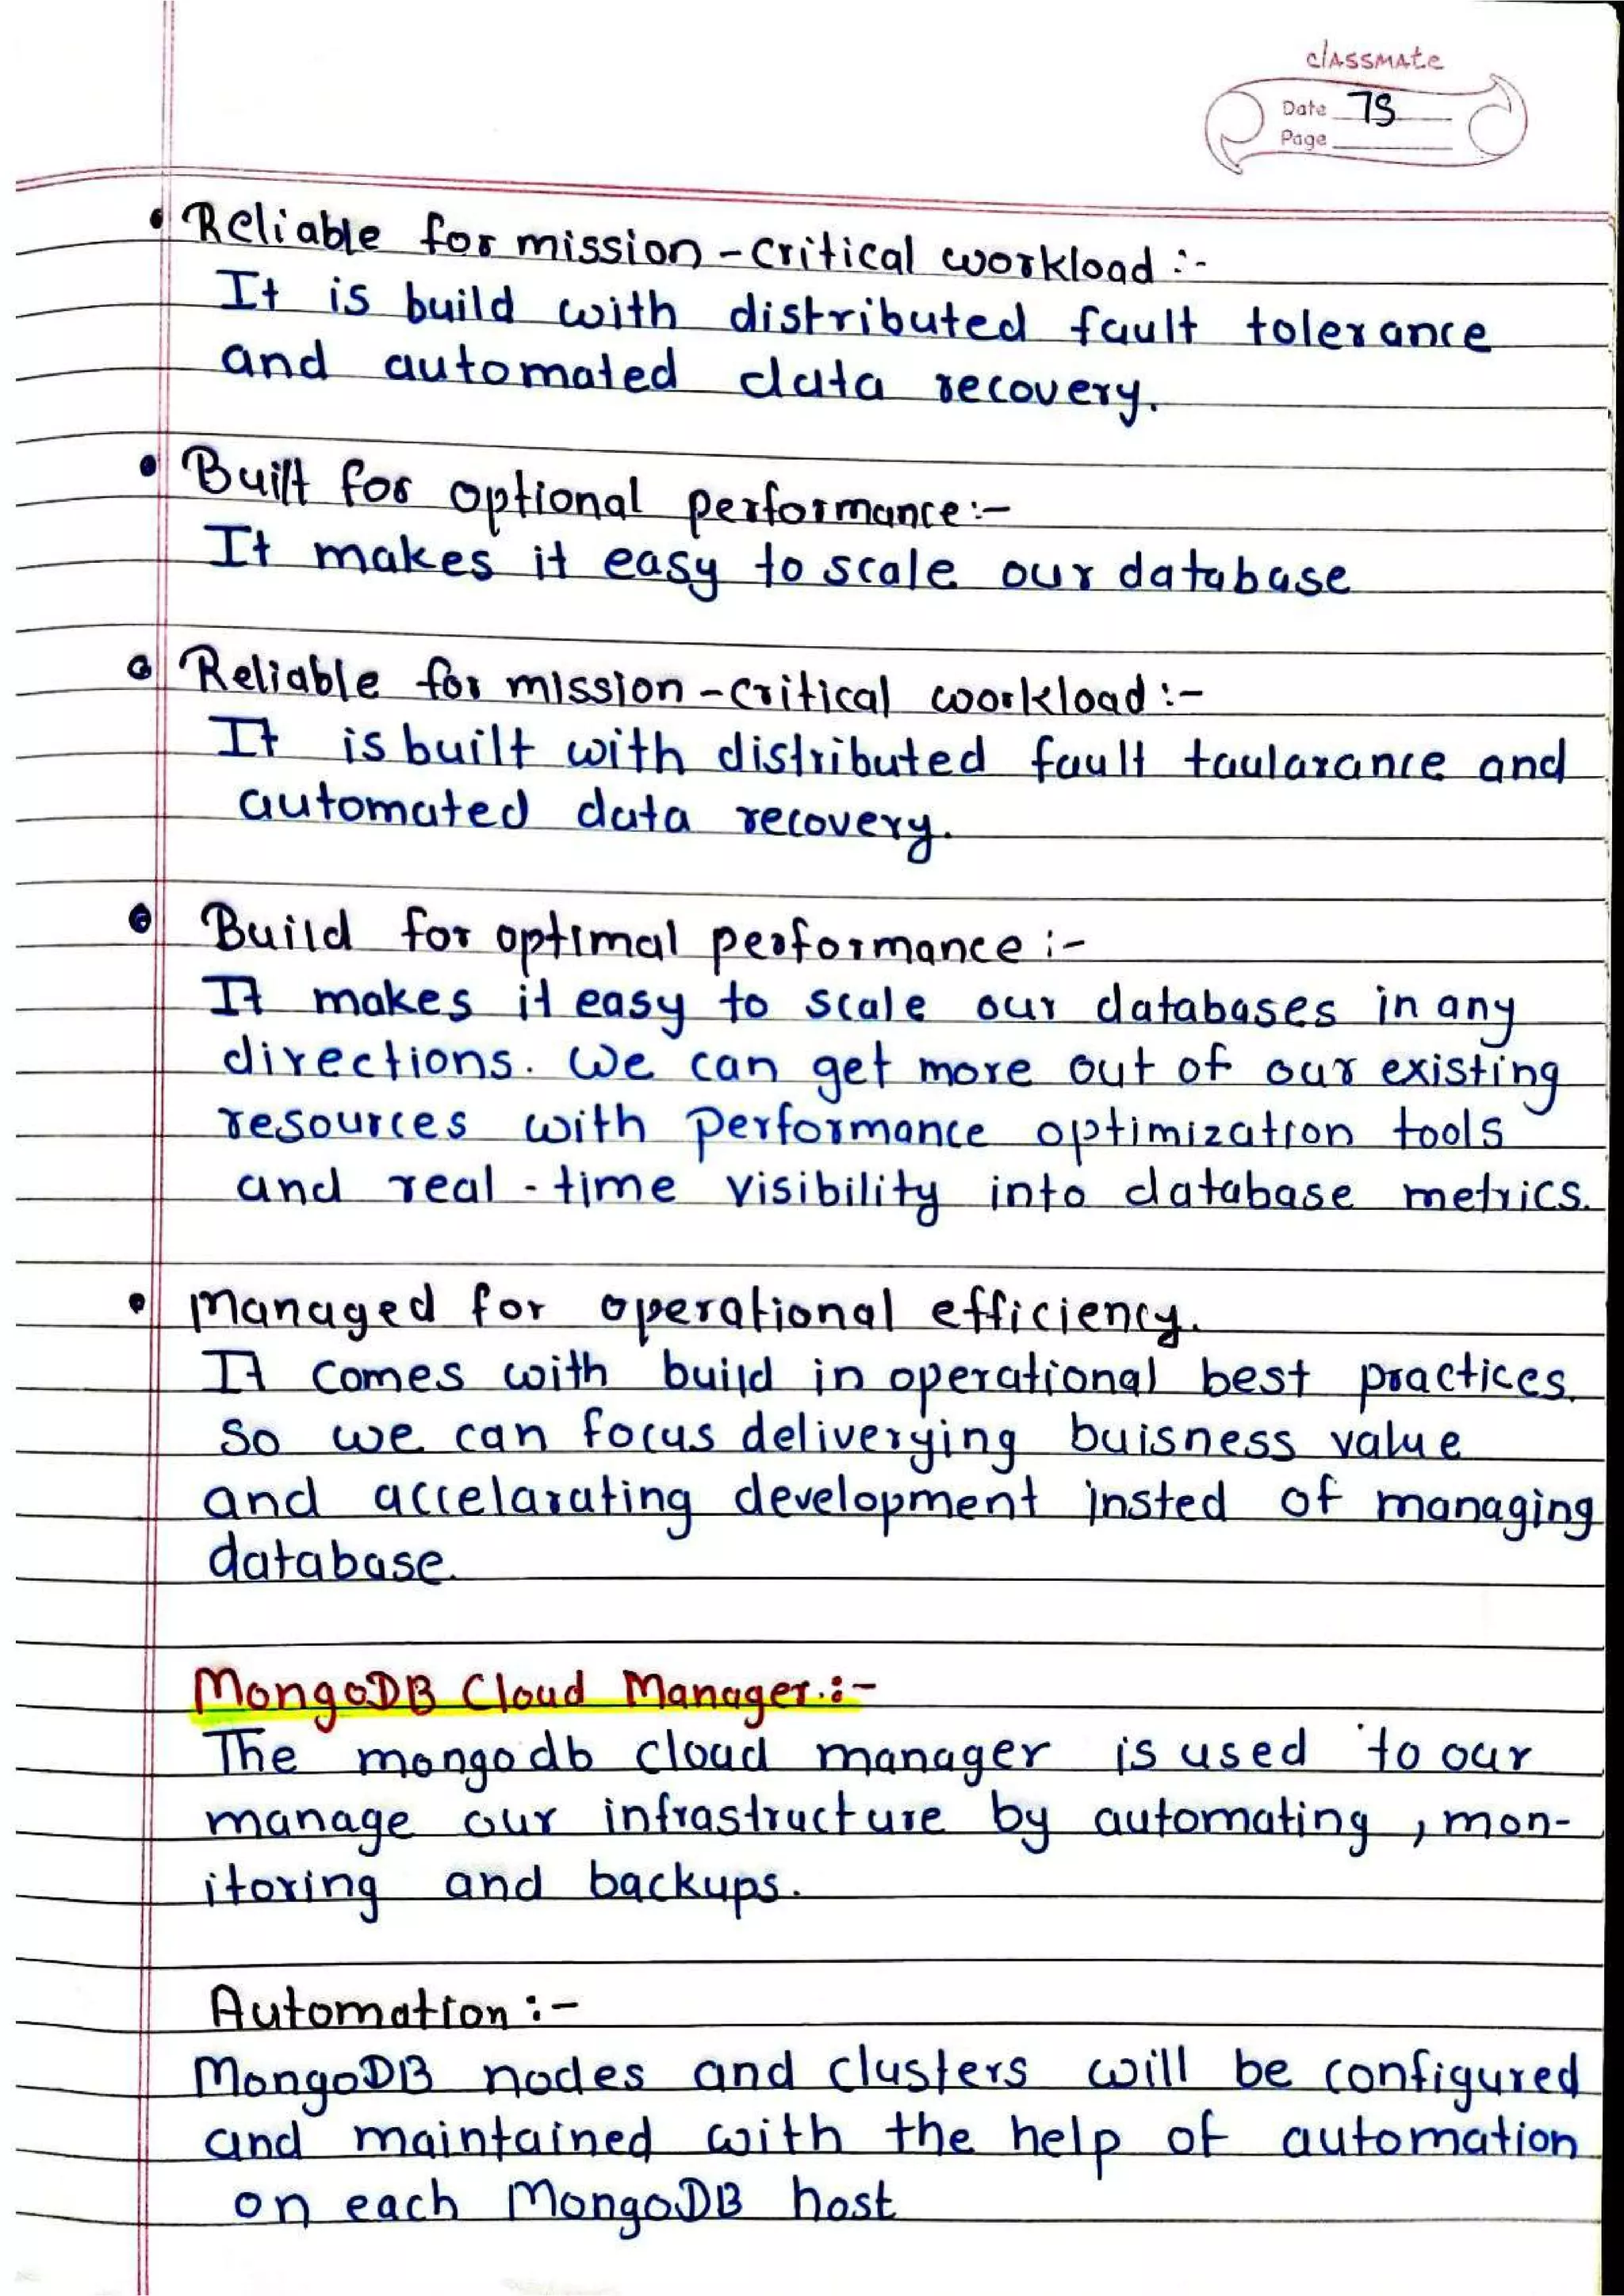 classmate
Date 75
Page
• Reliable for mission-critical workload :-
It is build with distributed fault tolerance
and automated data recovery.
• Built for optional performance:-
It makes it easy to scale our database
• Reliable for mission-critical workload :-
It is built with distributed fault taularance and
automated data recovery.
• Build for optimal performance :-
It makes it easy to scale our databases in any
directions. We can get more out of our existing
resources with performance optimization tools
and real-time visibility into database metrics.
• Managed for operational efficiency.
It comes with build in operational best practices.
So we can focus deliverying buisness value
and accelarating development insted of managing
database.
MongoDB Cloud Manager.:-
The mongodb cloud manager is used to our
manage our infrastructure by automating, mon-
itoring and backups.
Automation :-
MongoDB nodes and clusters will be configured
and maintained with the help of automation
on each MongoDB host